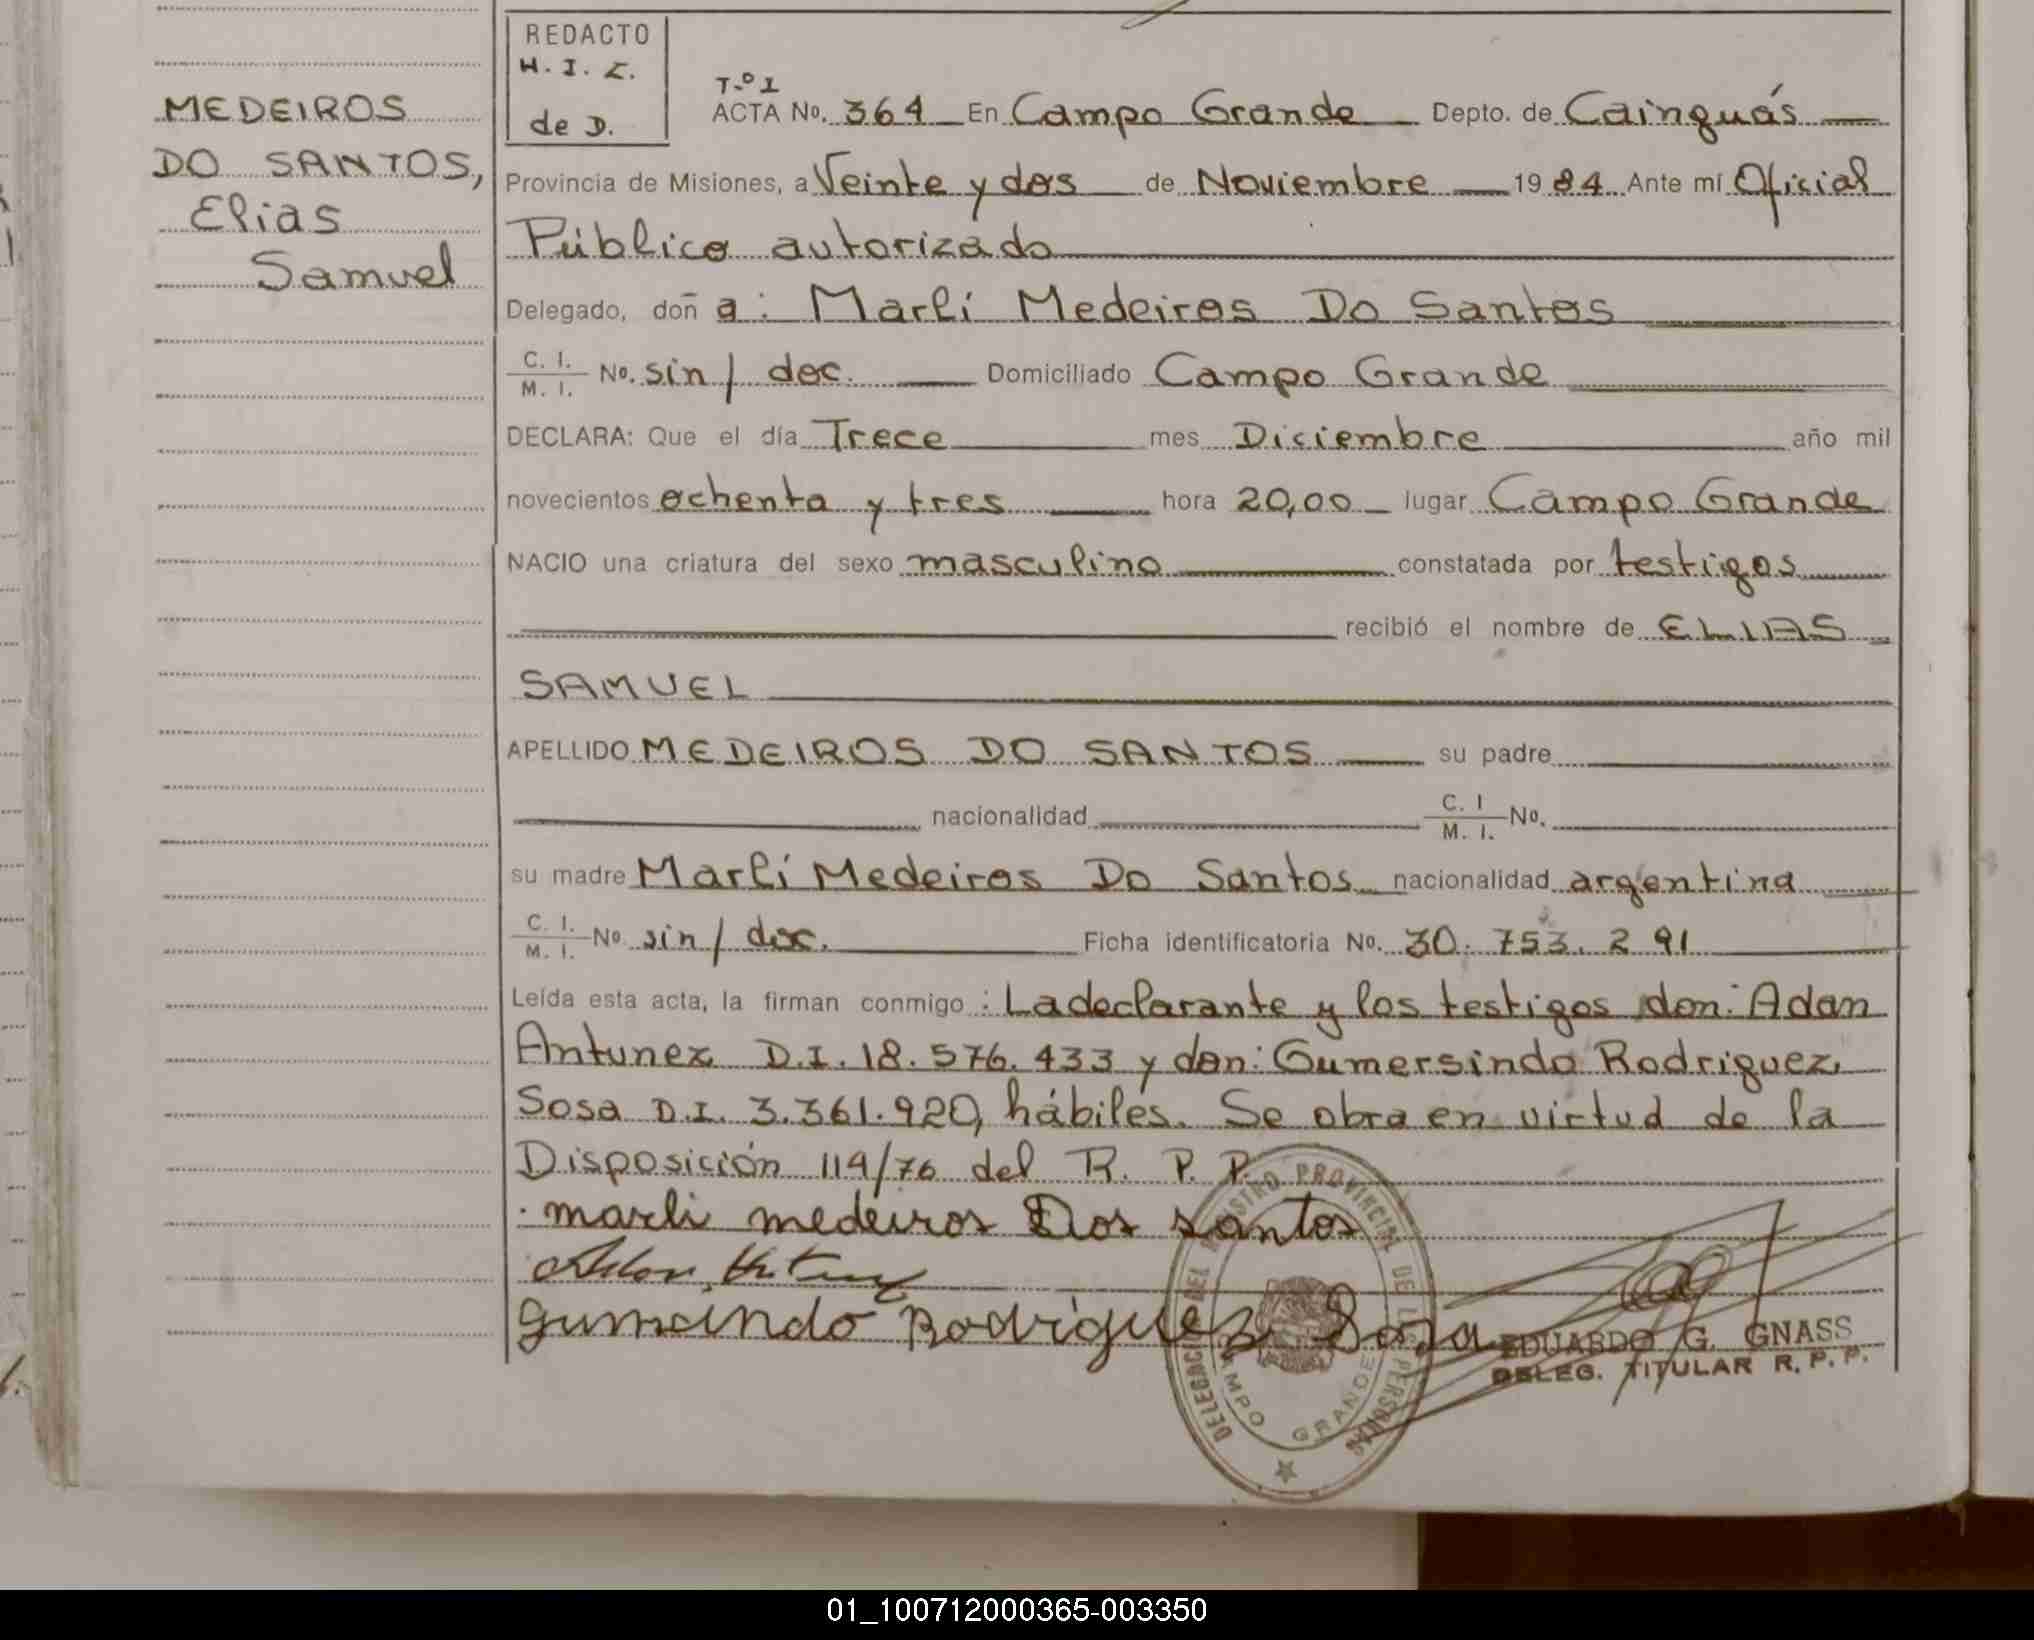 REDACTO
H. I. Z.
de D.
MEDEIROS
DO SANTOS,
Elias
Samuel
T.º I
ACTA No. 364 En Campo Grande Depto. de Cainguás
Provincia de Misiones, a Veinte y dos de Noviembre 1984 Ante mí Oficial
Público autorizado
Delegado, doña: Marlí Medeiros Do Santos
C. I. / M. I. No. sin/ doc. Domiciliado Campo Grande
DECLARA: Que el día Trece mes Diciembre año mil
novecientos ochenta y tres hora 20,00 lugar Campo Grande
NACIO una criatura del sexo masculino constatada por testigos
recibió el nombre de ELIAS
SAMUEL
APELLIDO MEDEIROS DO SANTOS su padre
nacionalidad C. I / M. I. No.
su madre Marlí Medeiros Do Santos nacionalidad argentina
C. I. / M. I. No sin/ doc. Ficha identificatoria No. 30. 753. 291
Leída esta acta, la firman conmigo: La declarante y los testigos don: Adan
Antunez D.I. 18.576.433 y don: Gumersindo Rodriguez
Sosa D.I. 3.361.920, hábiles. Se obra en virtud de la
Disposición 114/76 del R. P. P.
marli medeiros Dos santos
Gumercindo Rodriguez Sosa
DELEGACION DEL REGISTRO PROVINCIAL DE LAS PERSONAS
CAMPO GRANDE
EDUARDO G. GNASS
DELEG. TITULAR R. P. P.
01_100712000365-003350